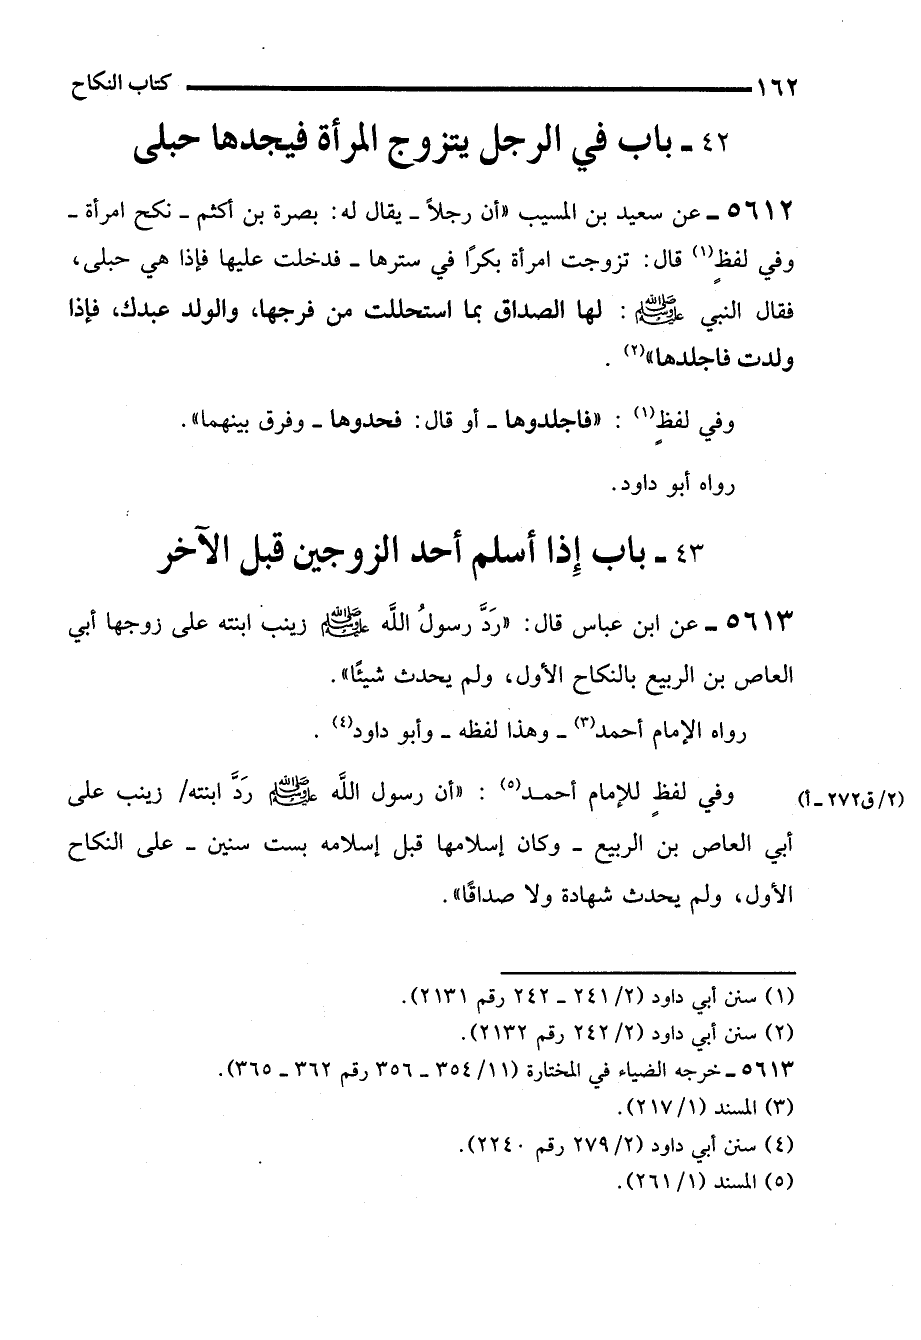 ١٦٢ كتاب النكاح
٤٢ ـ باب في الرجل يتزوج المرأة فيجدها حبلى
٥٦١٢ ـ عن سعيد بن المسيب «أن رجلاً ـ يقال له: بصرة بن أكثم ـ نكح امرأة ـ
وفي لفظٍ(١) قال: تزوجت امرأة بكرًا في سترها ـ فدخلت عليها فإذا هي حبلى،
فقال النبي ﷺ: لها الصداق بما استحللت من فرجها، والولد عبدك، فإذا
ولدت فاجلدها»(٢).
وفي لفظٍ(١): «فاجلدوها ـ أو قال: فحدوها ـ وفرق بينهما».
رواه أبو داود.
٤٣ ـ باب إِذا أسلم أحد الزوجين قبل الآخر
٥٦١٣ ـ عن ابن عباس قال: «رَدَّ رسولُ اللَّه ﷺ زينب ابنته على زوجها أبي
العاص بن الربيع بالنكاح الأول، ولم يحدث شيئًا».
رواه الإمام أحمد(٣) ـ وهذا لفظه ـ وأبو داود(٤).
وفي لفظٍ للإمام أحمد(٥): «أن رسول اللَّه ﷺ رَدَّ ابنته/ زينب على (٢/ق٢٧٢ـأ)
أبي العاص بن الربيع ـ وكان إسلامها قبل إسلامه بست سنين ـ على النكاح
الأول، ولم يحدث شهادة ولا صداقًا».
(١) سنن أبي داود (٢/٢٤١ ـ ٢٤٢ رقم ٢١٣١).
(٢) سنن أبي داود (٢/٢٤٢ رقم ٢١٣٢).
٥٦١٣ ـ خرجه الضياء في المختارة (١١/٣٥٤ ـ ٣٥٦ رقم ٣٦٢ ـ ٣٦٥).
(٣) المسند (١/٢١٧).
(٤) سنن أبي داود (٢/٢٧٩ رقم ٢٢٤٠).
(٥) المسند (١/٢٦١).